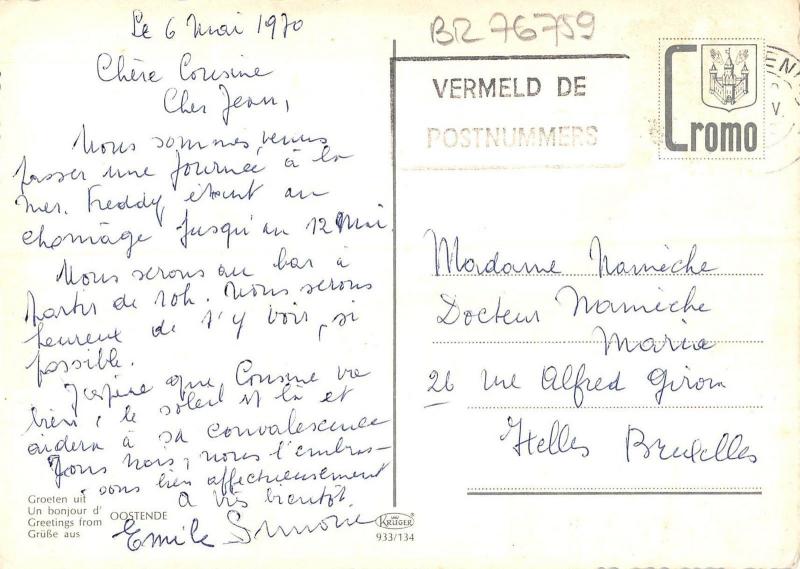 Le 6 Mai 1970
Chère Cousine
Cher Jean,
Nous sommes venus
passer une journée à la
mer. Freddy étant au
chomage jusqu'au 12 Mai.
Nous serons au bar à
partir de 20h. Nous serons
heureux de t'y voir, si
possible.
J'espère que Cousine va
bien, le soleil est là et
aidera à sa convalescence
Tous trois, nous l'embras-
sons bien affectueusement
à très bientôt.
Emile Simone
Groeten uit
Un bonjour d'
Greetings from
Grüße aus
OOSTENDE
KRÜGER
933/134
BR 76759
VERMELD DE
POSTNUMMERS
Cromo
Madame Namèche
Docteur Namèche
Maria
26 rue Alfred Giron
Ixelles Bruxelles